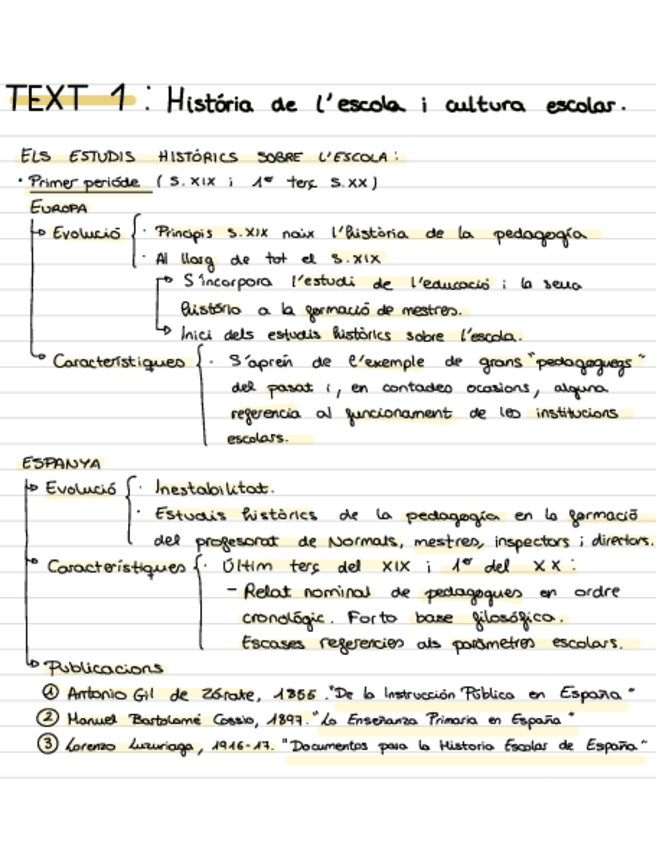 TEXT 1: História de l'escola i cultura escolar.
ELS ESTUDIS HISTÒRICS SOBRE L'ESCOLA:
· Primer periode (S.XIX i 1er terç S.XX)
EUROPA
Evolució { · Principis S.XIX naix l'història de la pedagogia
· Al llarg de tot el S.XIX
S'incorpora l'estudi de l'educació i la seua
història a la formació de mestres.
Inici dels estudis històrics sobre l'escola.
Característiques { · S'aprén de l'exemple de grans "pedagoguegs"
del pasat i, en contades ocasions, alguna
referencia al funcionament de les institucions
escolars.
ESPANYA
Evolució { · Inestabilitat.
· Estudis històrics de la pedagogia en la formació
del profesorat de Normals, mestres, inspectors i directors.
Característiques { · Últim terç del XIX i 1er del XX:
- Relat nominal de pedagogues en ordre
cronológic. Forta base filosófica.
Escases referencies als parametres escolars.
Publicacions
① Antonio Gil de Zárate, 1855. "De la Instrucción Pública en España"
② Manuel Bartolomé Cossio, 1897. "La Enseñanza Primaria en España"
③ Lorenzo Luzuriaga, 1916-17. "Documentos para la Historia Escolar de España"